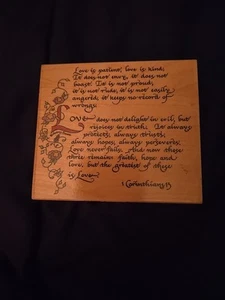 Love is patient, love is kind.
It does not envy, it does not
boast. It is not proud,
it is not rude, it is not easily
angered, it keeps no record of
wrongs.
Love does not delight in evil, but
rejoices in truth. It always
protects, always trusts,
always hopes, always perseveres.
Love never fails. And now these
three remain faith, hope and
love. but the greatest of these
is Love
1 Corinthians 13